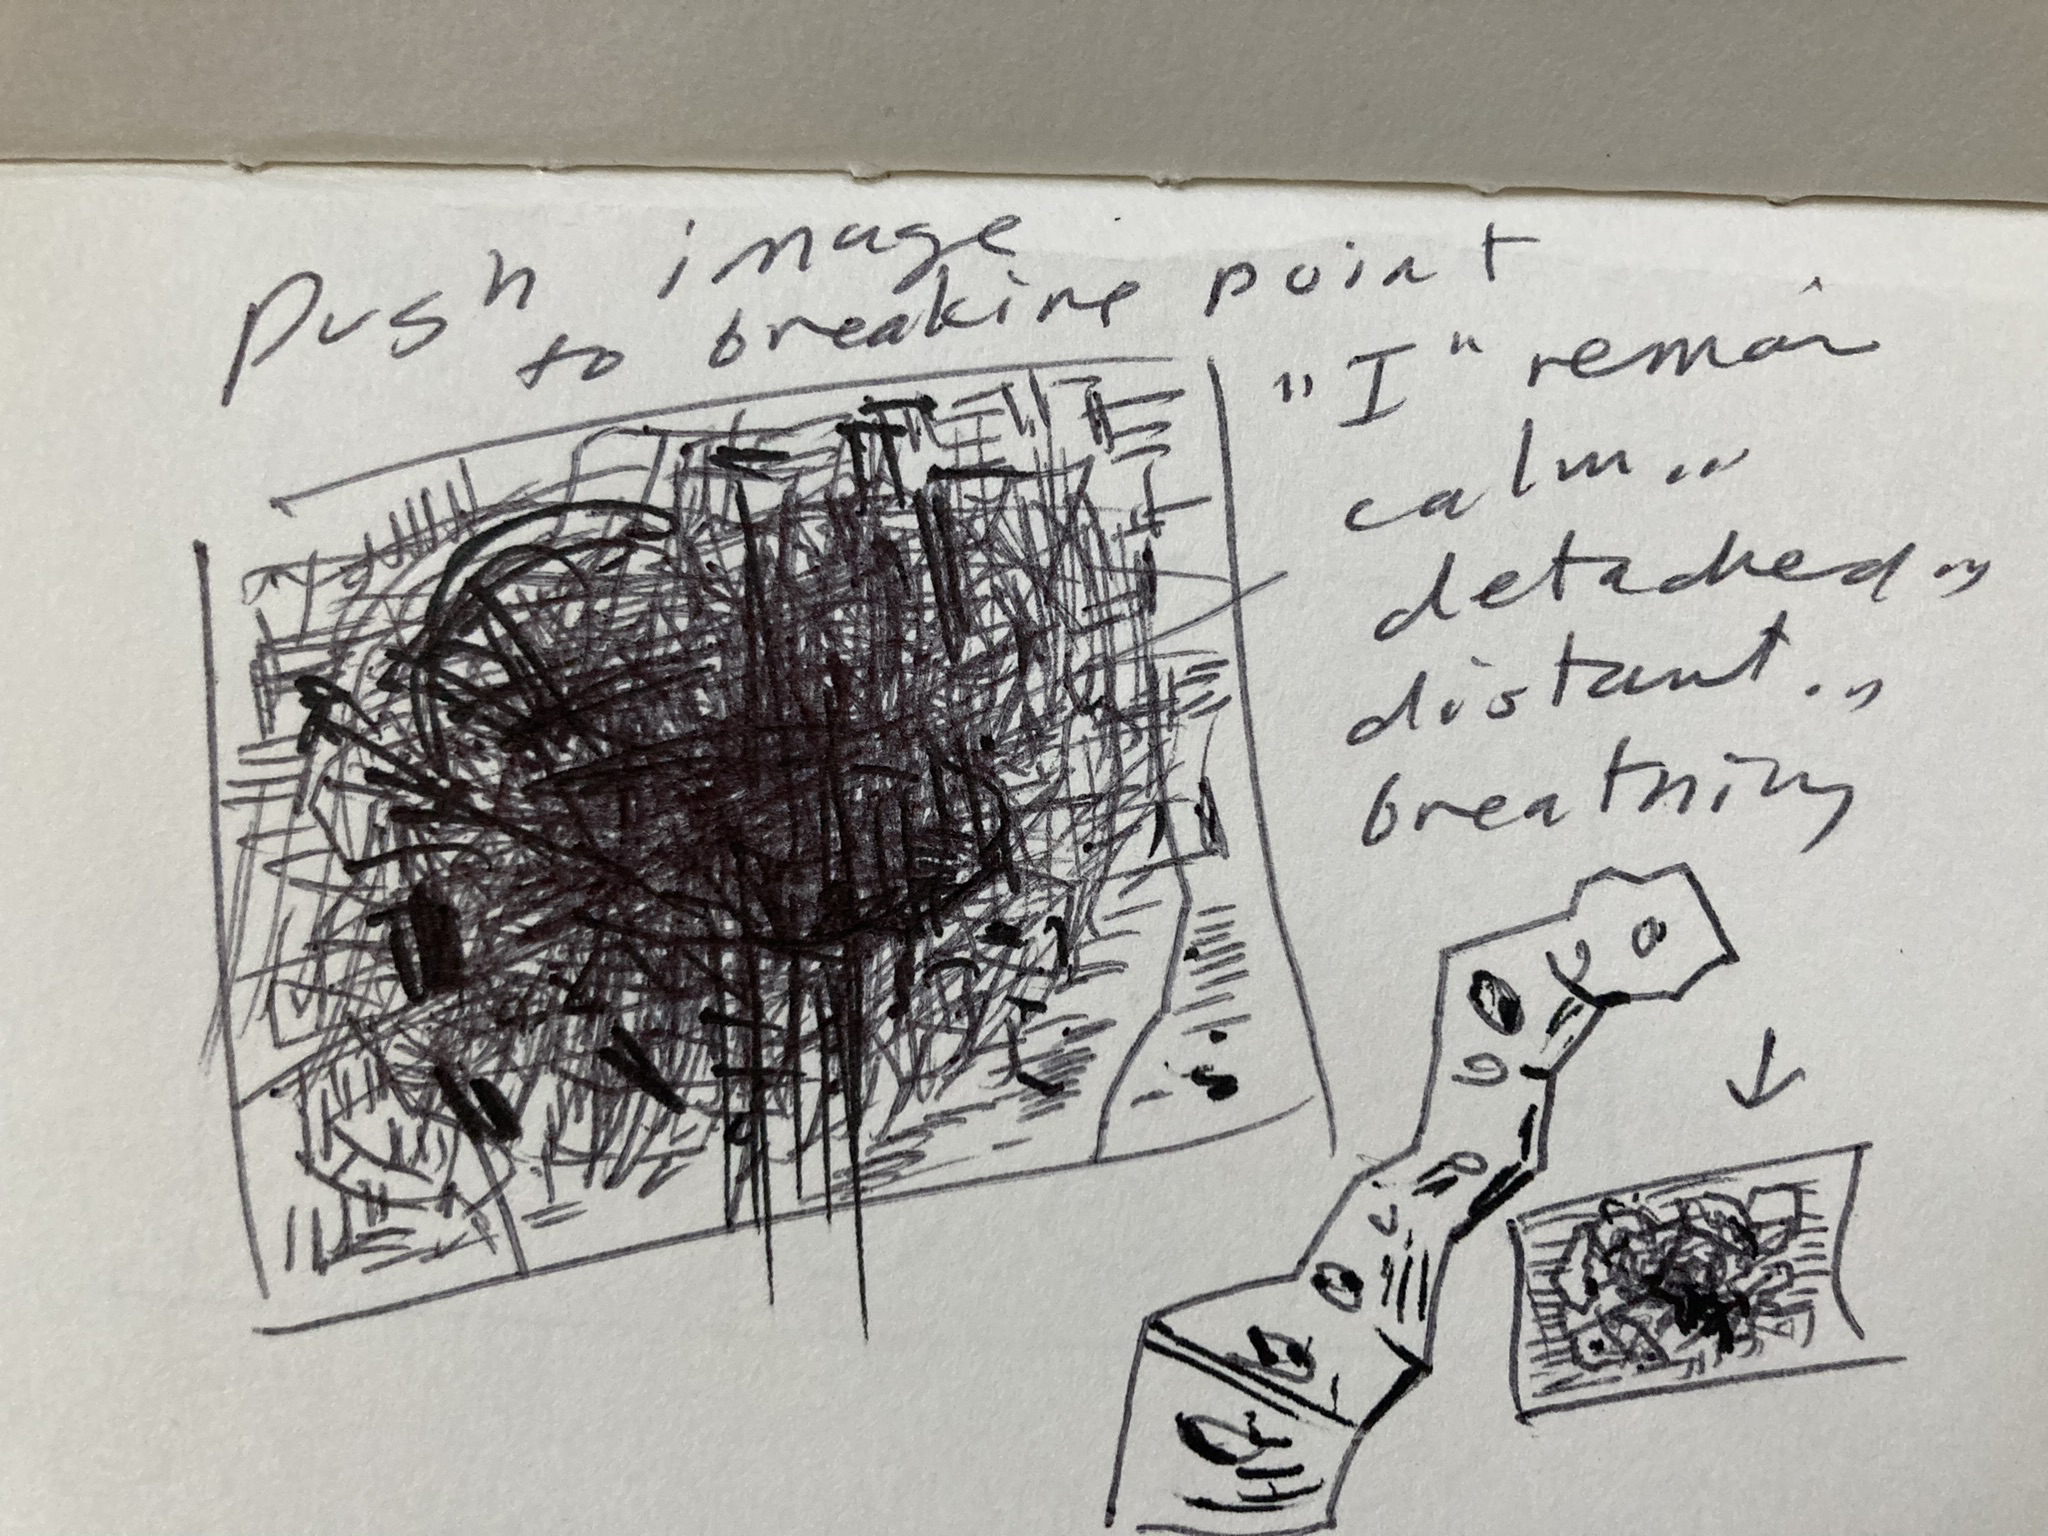 Push image
to breaking point
"I" remain
calm...
detached...
distant...
breathing